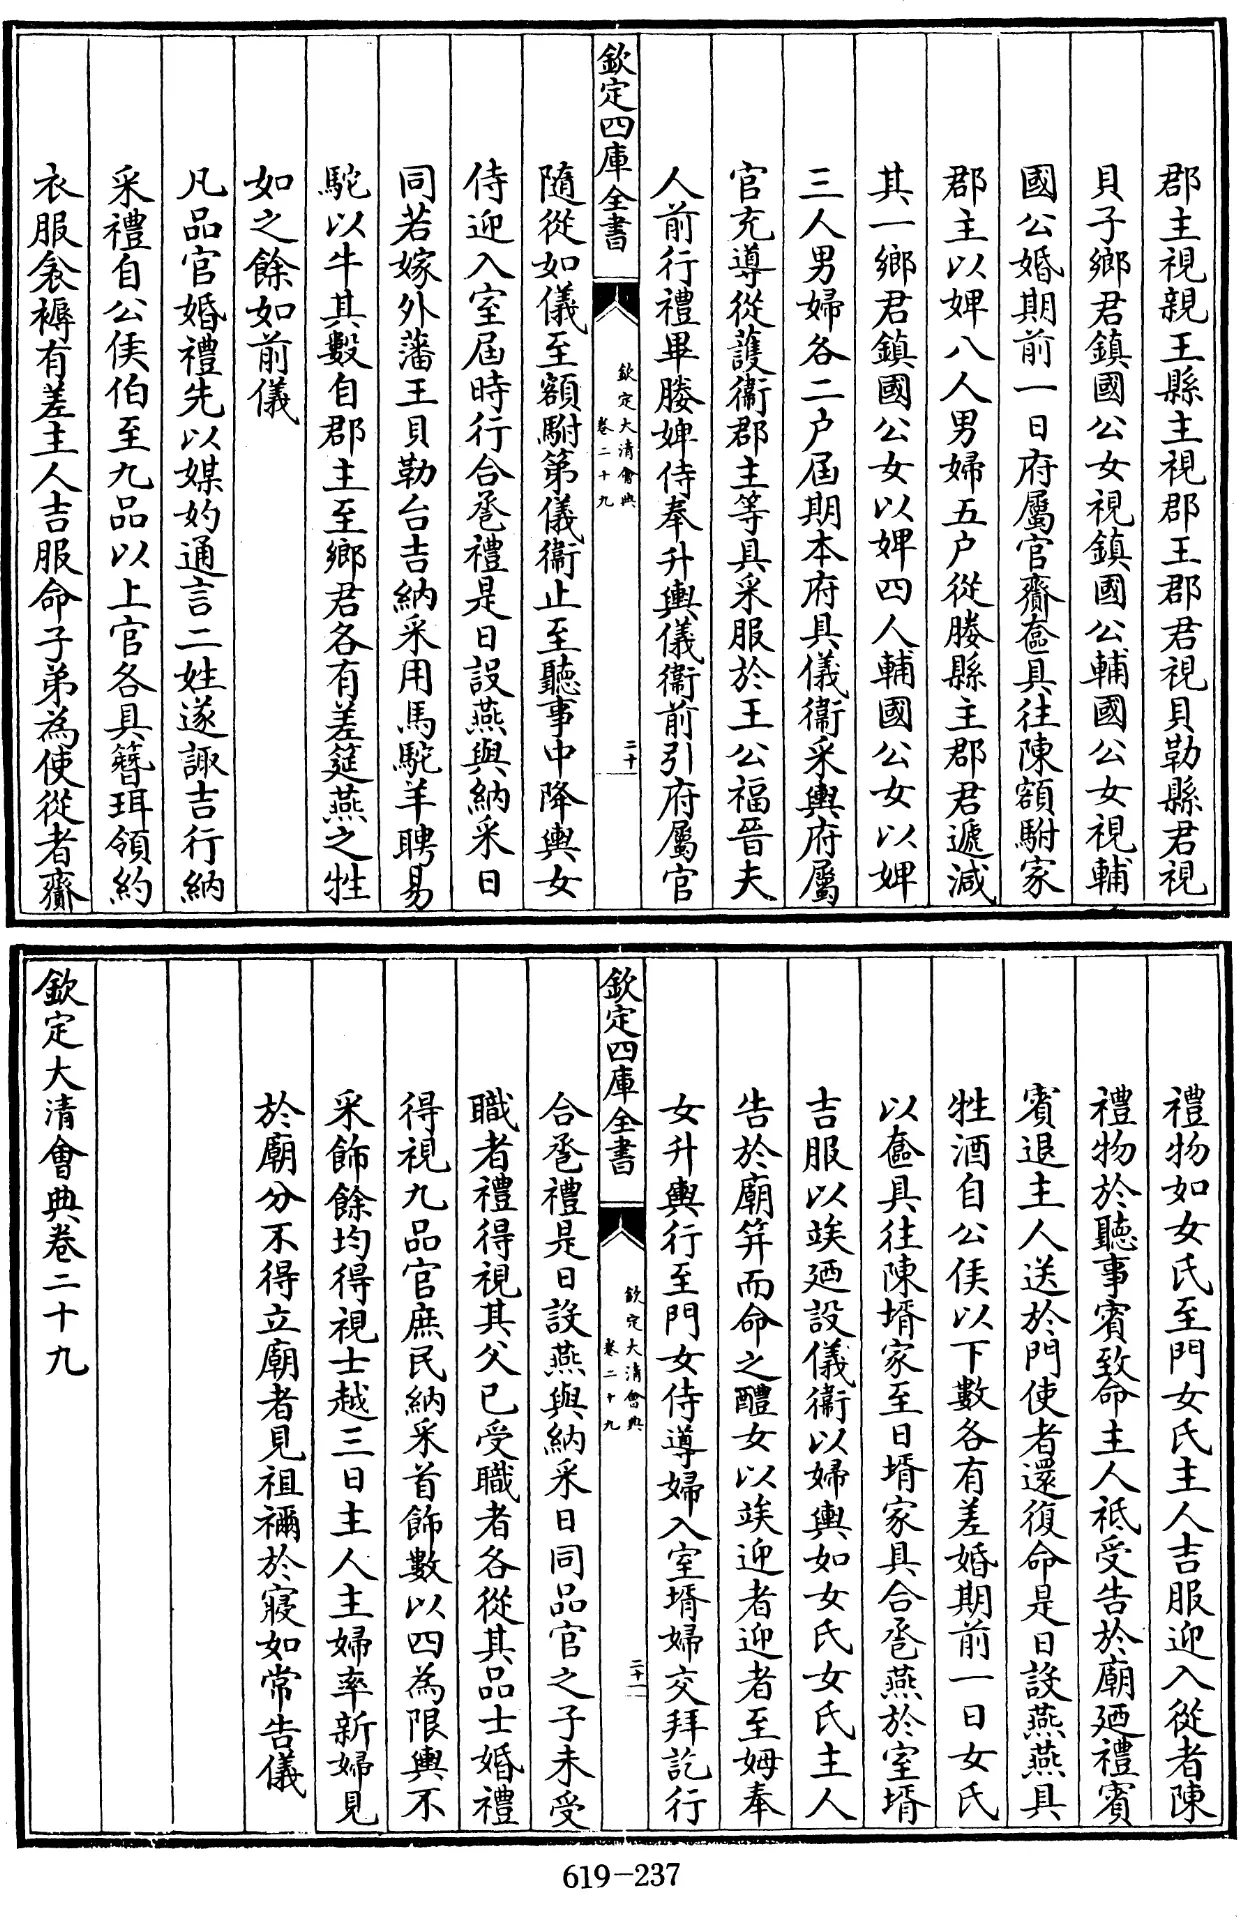 郡主視親王縣主視郡王郡君視貝勒縣君視
貝子鄉君鎮國公女視鎮國公輔國公女視輔
國公婚期前一日府屬官齎奩具往陳額駙家
郡主以婢八人男婦五户從媵縣主郡君遞減
其一鄉君鎮國公女以婢四人輔國公女以婢
三人男婦各二户屆期本府具儀衞采輿府屬
官充導從護衞郡主等具采服於王公福晉夫
人前行禮畢媵婢侍奉升輿儀衞前引府屬官
欽定四庫全書
欽定大清會典
卷二十九
二十
隨從如儀至額駙第儀衞止至聽事中降輿女
侍迎入室屆時行合卺禮是日設燕與納采日
同若嫁外藩王貝勒台吉納采用馬駝羊聘易
駝以牛其數自郡主至鄉君各有差筵燕之牲
如之餘如前儀
凡品官婚禮先以媒妁通言二姓遂諏吉行納
采禮自公侯伯至九品以上官各具簪珥領約
衣服衾褥有差主人吉服命子弟為使從者齎
禮物如女氏至門女氏主人吉服迎入從者陳
禮物於聽事賓致命主人祗受告於廟廼禮賓
賓退主人送於門使者還復命是日設燕燕具
牲酒自公侯以下數各有差婚期前一日女氏
以奩具往陳壻家至日壻家具合卺燕於室壻
吉服以竢廼設儀衞以婦輿如女氏女氏主人
告於廟笄而命之醴女以竢迎者迎者至姆奉
女升輿行至門女侍導婦入室壻婦交拜訖行
欽定四庫全書
欽定大清會典
卷二十九
二十一
合卺禮是日設燕與納采日同品官之子未受
職者禮得視其父已受職者各從其品士婚禮
得視九品官庶民納采首飾數以四為限輿不
采飾餘均得視士越三日主人主婦率新婦見
於廟分不得立廟者見祖禰於寢如常告儀
欽定大清會典卷二十九
619-237